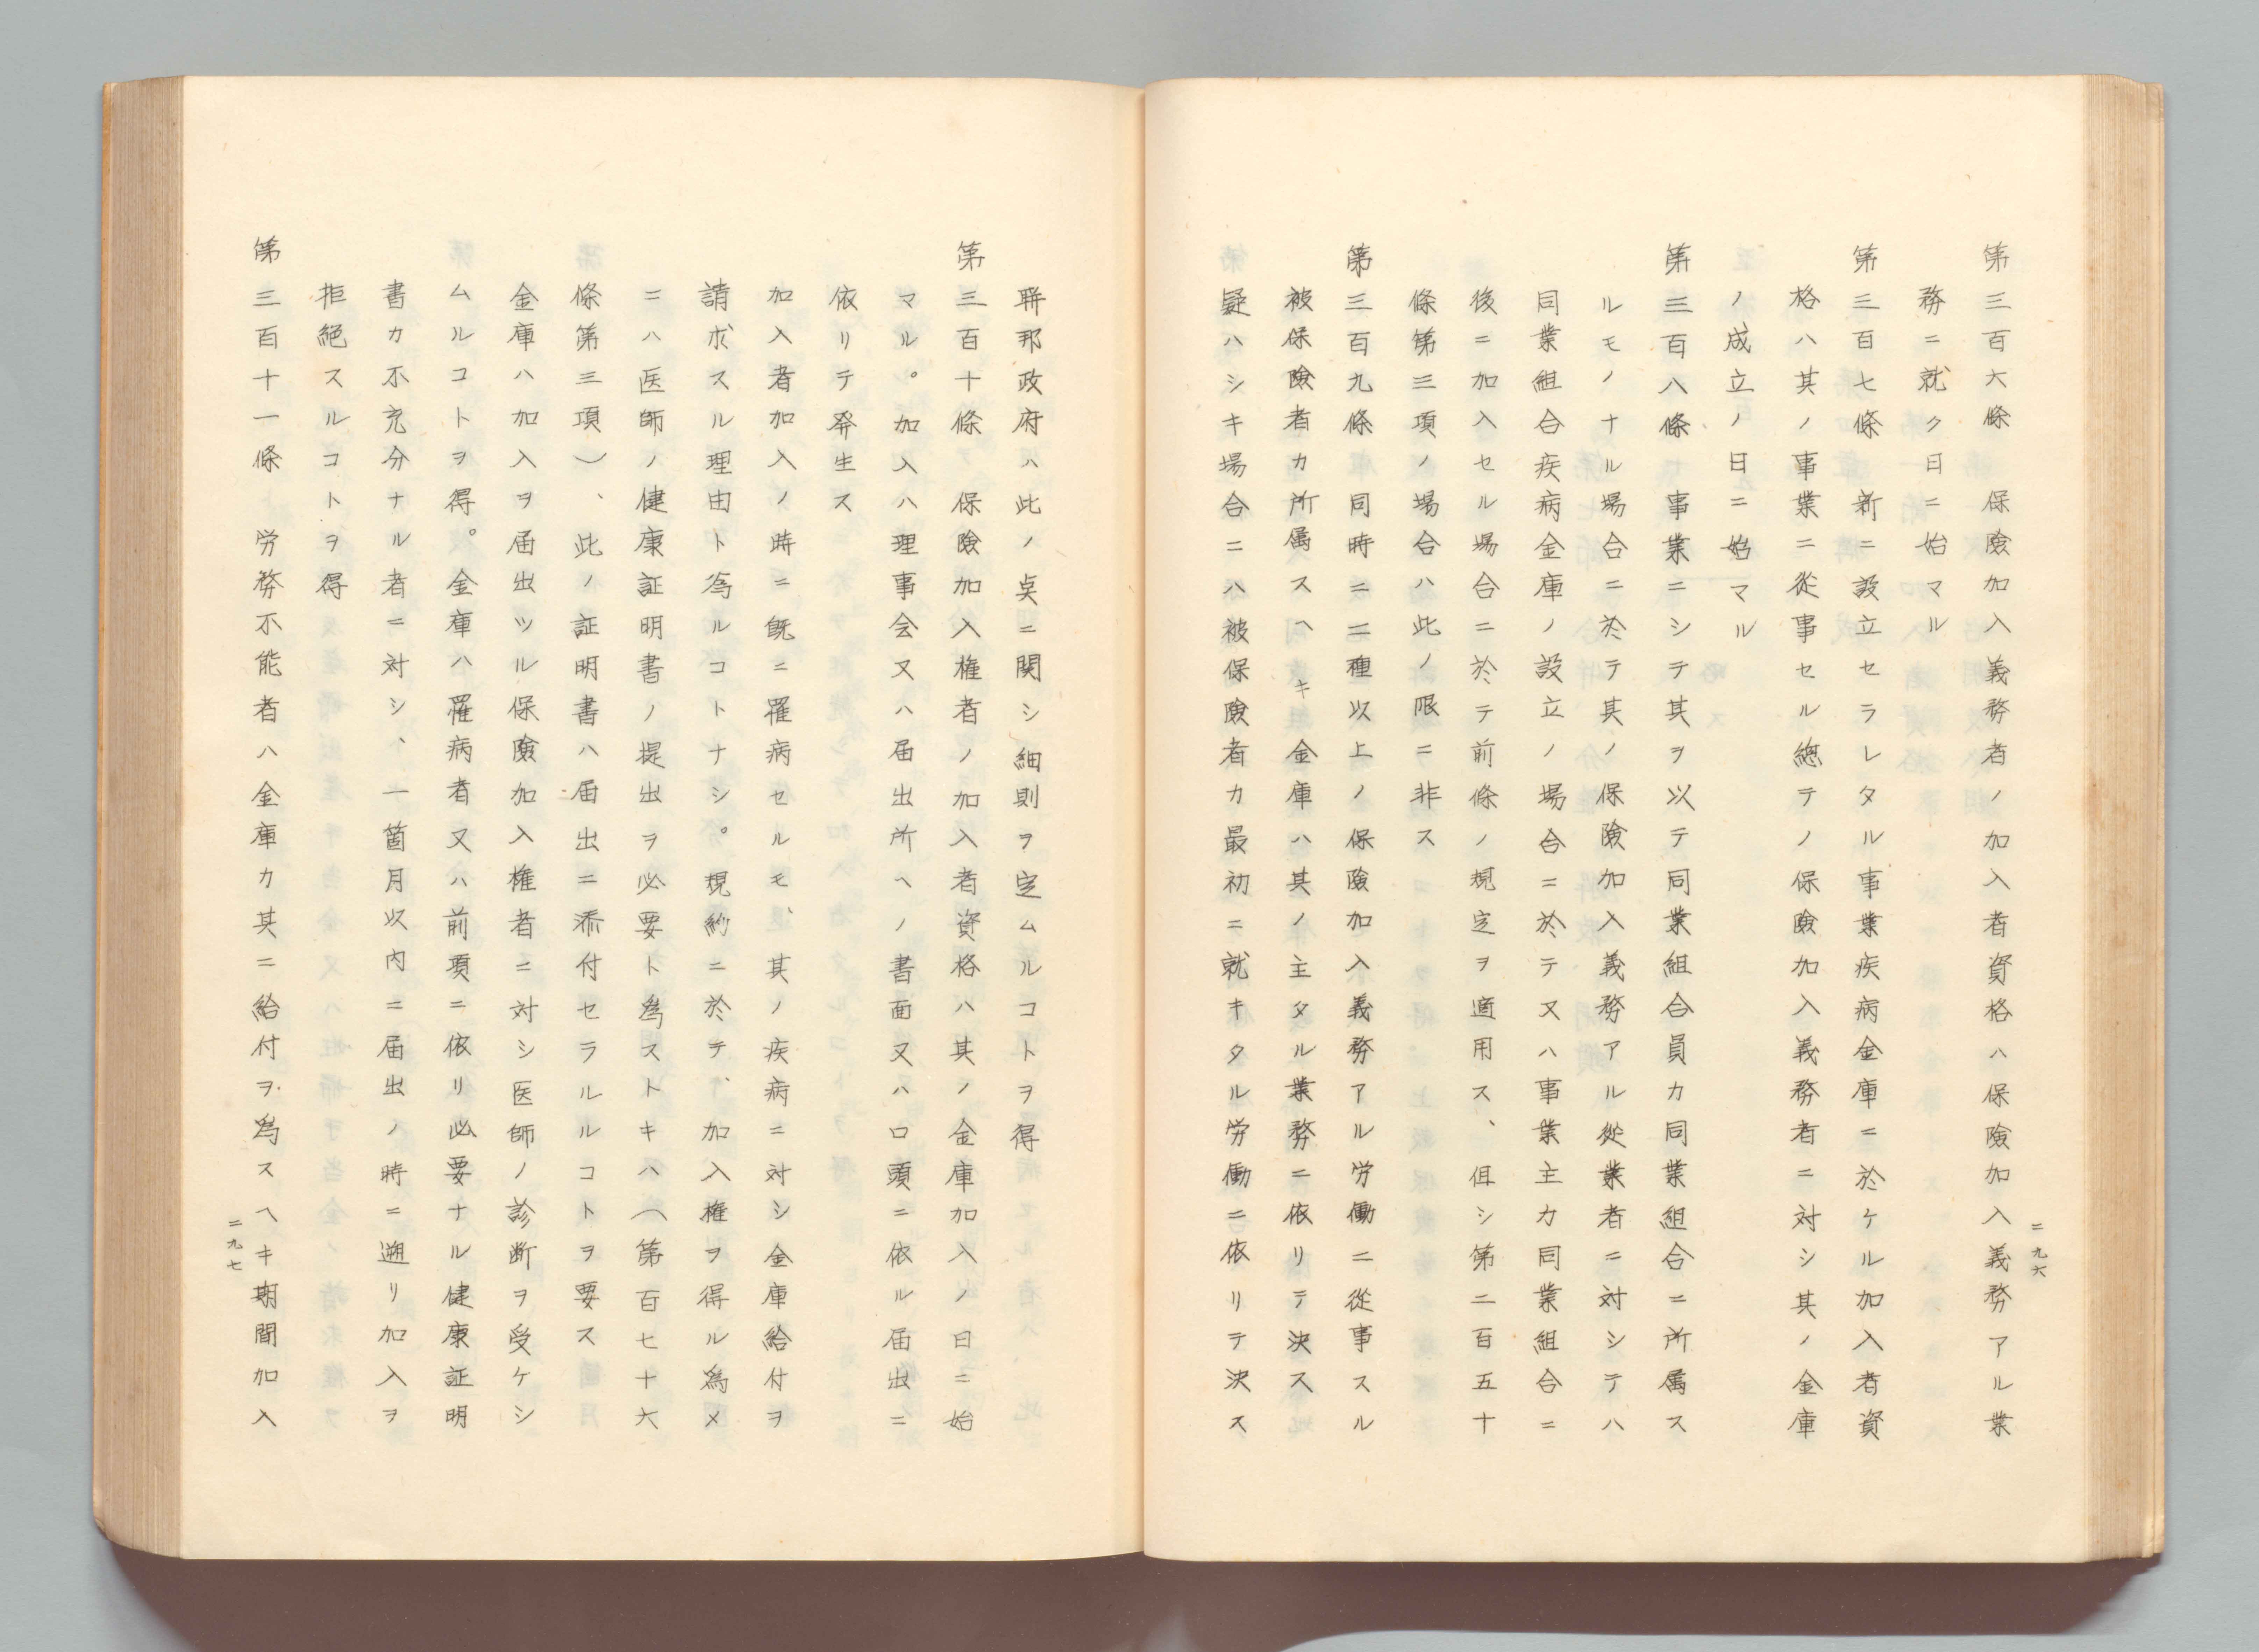 第三百六條　保險加入義務者ノ加入者資格ハ保險加入義務アル業
務ニ就ク日ニ始マル
第三百七條　新ニ設立セラレタル事業疾病金庫ニ於ケル加入者資
格ハ其ノ事業ニ從事セル總テノ保險加入義務者ニ対シ其ノ金庫
ノ成立ノ日ニ始マル
第三百八條　事業ニシテ其ヲ以テ同業組合員カ同業組合ニ所属ス
ルモノナル場合ニ於テ其ノ保險加入義務アル従業者ニ対シテハ
同業組合疾病金庫ノ設立ノ場合ニ於テ又ハ事業主カ同業組合ニ
後ニ加入セル場合ニ於テ前條ノ規定ヲ適用ス、但シ第二百五十
條第三項ノ場合ハ此ノ限ニ非ス
第三百九條　同時ニ二種以上ノ保險加入義務アル労働ニ從事スル
被保險者カ所属スヘキ金庫ハ其ノ主タル業務ニ依リテ決ス
疑ハシキ場合ニハ被保險者カ最初ニ就キタル労働ニ依リテ決ス
二九六
聯邦政府ハ此ノ点ニ関シ細則ヲ定ムルコトヲ得
第三百十條　保險加入権者ノ加入者資格ハ其ノ金庫加入ノ日ニ始
マル。加入ハ理事会又ハ届出所ヘノ書面又ハ口頭ニ依ル届出ニ
依リテ発生ス
加入者加入ノ時ニ既ニ罹病セルモ、其ノ疾病ニ対シ金庫給付ヲ
請求スル理由ト為ルコトナシ。規約ニ於テ、加入権ヲ得ル為メ
ニハ医師ノ健康証明書ノ提出ヲ必要ト為ストキハ（第百七十六
條第三項）、此ノ証明書ハ届出ニ添付セラルルコトヲ要ス
金庫ハ加入ヲ届出ツル保險加入権者ニ対シ医師ノ診断ヲ受ケシ
ムルコトヲ得。金庫ハ罹病者又ハ前項ニ依リ必要ナル健康証明
書カ不充分ナル者ニ対シ、一箇月以内ニ届出ノ時ニ遡リ加入ヲ
拒絕スルコトヲ得
第三百十一條　労務不能者ハ金庫カ其ニ給付ヲ為スヘキ期間加入
二九七